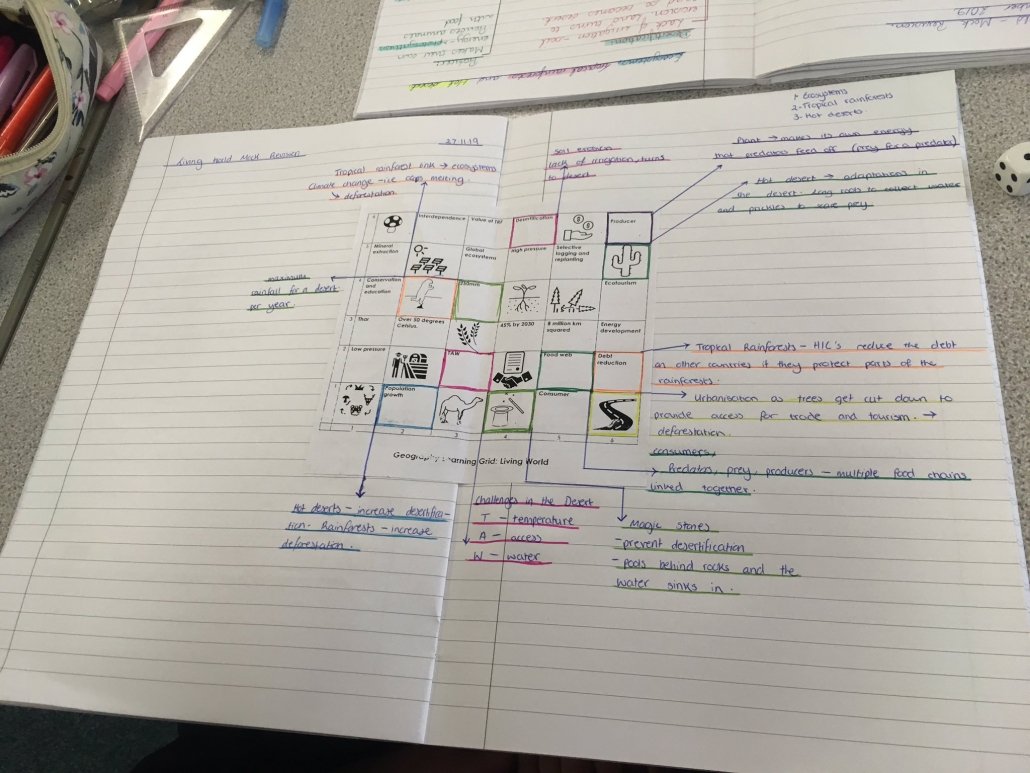 Living World Mock Revision
27.11.19
1. Ecosystems
2-Tropical rainforests
3- Hot deserts
Tropical rainforest link → ecosystems
Climate change - ice caps melting.
↳ deforestation
Soil erosion
lack of irrigation, turns
to desert
Plant → makes its own energy
that predators feen off (prey for a predator)
Hot desert → adaptations in
the desert. Long roots to collect water
and prickles to scare prey
maximum
rainfall for a desert
per year.
6 Interdependence Value of TRF Desertification Producer
5 Mineral extraction Global ecosystems High pressure Selective logging and replanting
4 Conservation and education 250mm Ecotourism
3 Thar Over 50 degrees Celsius. 45% by 2030 8 million km squared Energy development
2 Low pressure TAW Food web Debt reduction
1 Population growth Consumer
1 2 3 4 5 6
Geography Learning Grid: Living World
Tropical Rainforests - HIC's reduce the debt
on other countries if they protect parts of the
rainforests.
Urbanisation as trees get cut down to
provide access for trade and tourism. →
deforestation.
consumers,
Predators, prey, producers - multiple food chains
linked together.
Hot deserts - increase desertifica-
tion. Rainforests - increase
deforestation.
Challenges in the Desert
T - temperature
A - access
W - water
Magic stones
- prevent desertification
- pools behind rocks and the
water sinks in.
Ecosystems, tropical rainforests and Hot desert
Producer:
Makes their own
energy - photosynthesis
Provides animals
with food
Desertification:
Lack of irrigation - soil
erosion. Land turns to
- Mock Revision
2019